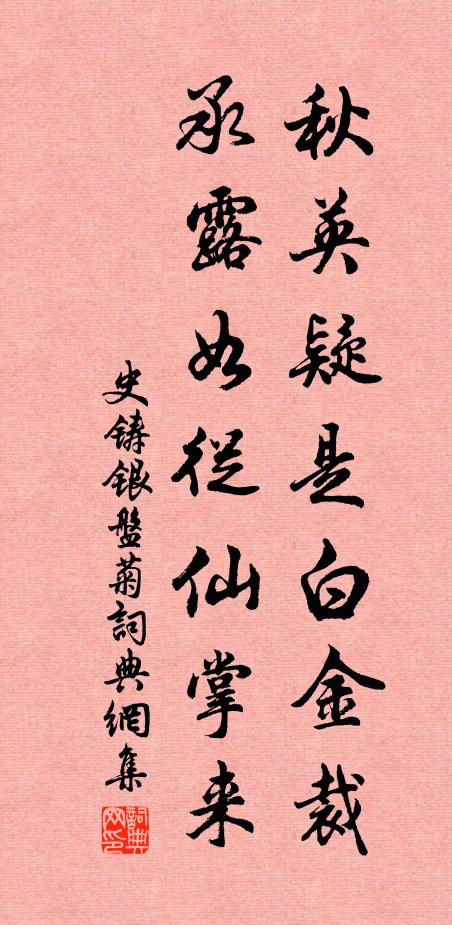 秋英疑是白金裁
承露如從仙掌来
史铸银盤菊詞典網集
詞典网印